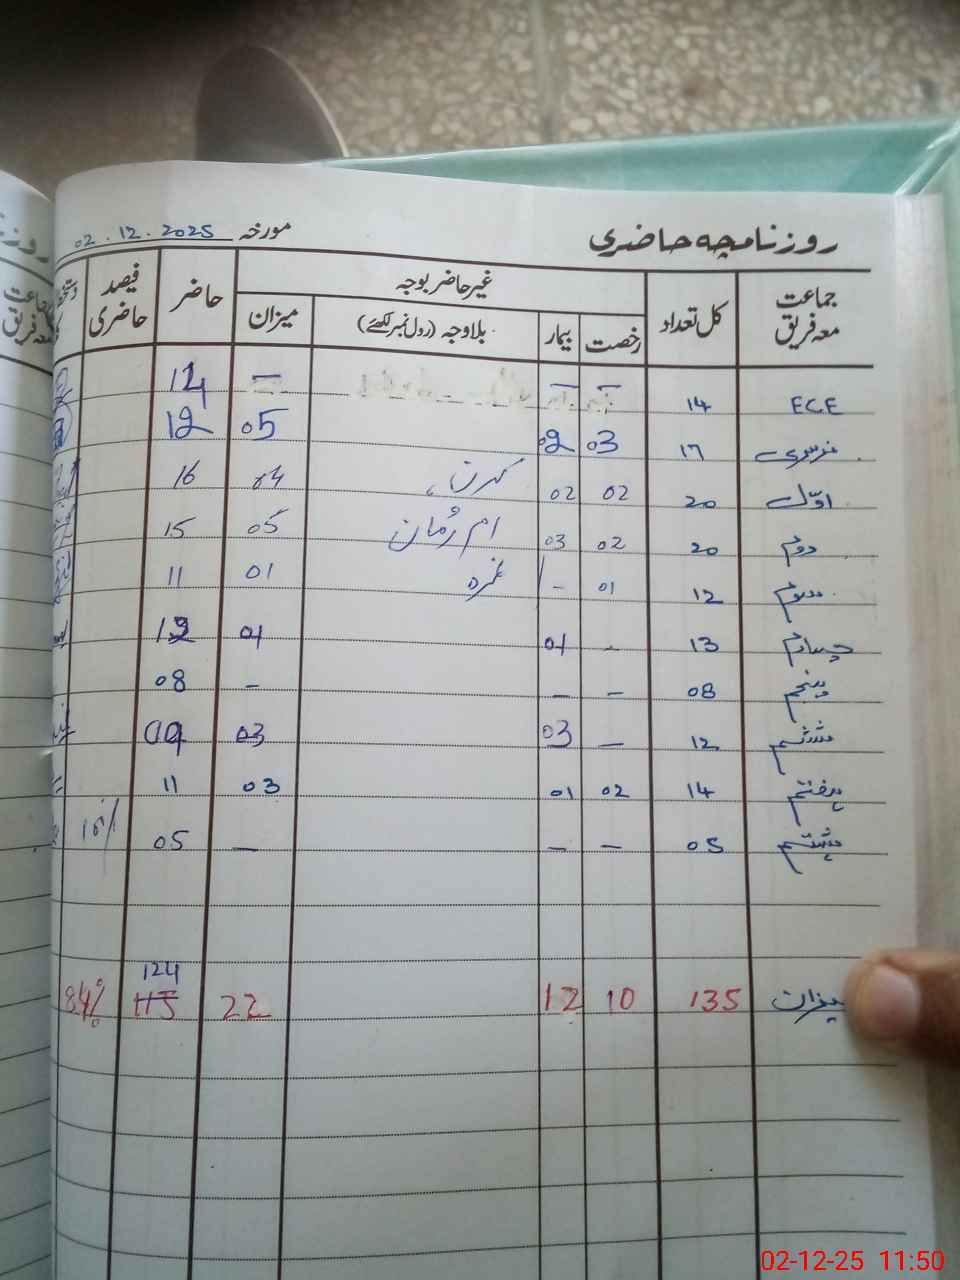 روزنامچہ حاضری مورخہ 02.12.2025
جماعت معہ فریق کل تعداد غیر حاضر بوجہ حاضر فیصد حاضری
رخصت بیمار بلاوجہ (رول نمبر لکھئے) میزان
ECE 14 – – – 14
نرسری 17 03 02 05 12
اوّل 20 02 02 کرن، 04 16
دوم 20 02 03 ام رُمان 05 15
سوم 12 01 - 01 11
چہارم 13 - 01 01 12
پنجم 08 – – – 08
ششم 12 – 03 03 09
ہفتم 14 02 01 03 11
ہشتم 05 – – – 05
میزان 135 10 12 22 115 84%
124
02-12-25 11:50